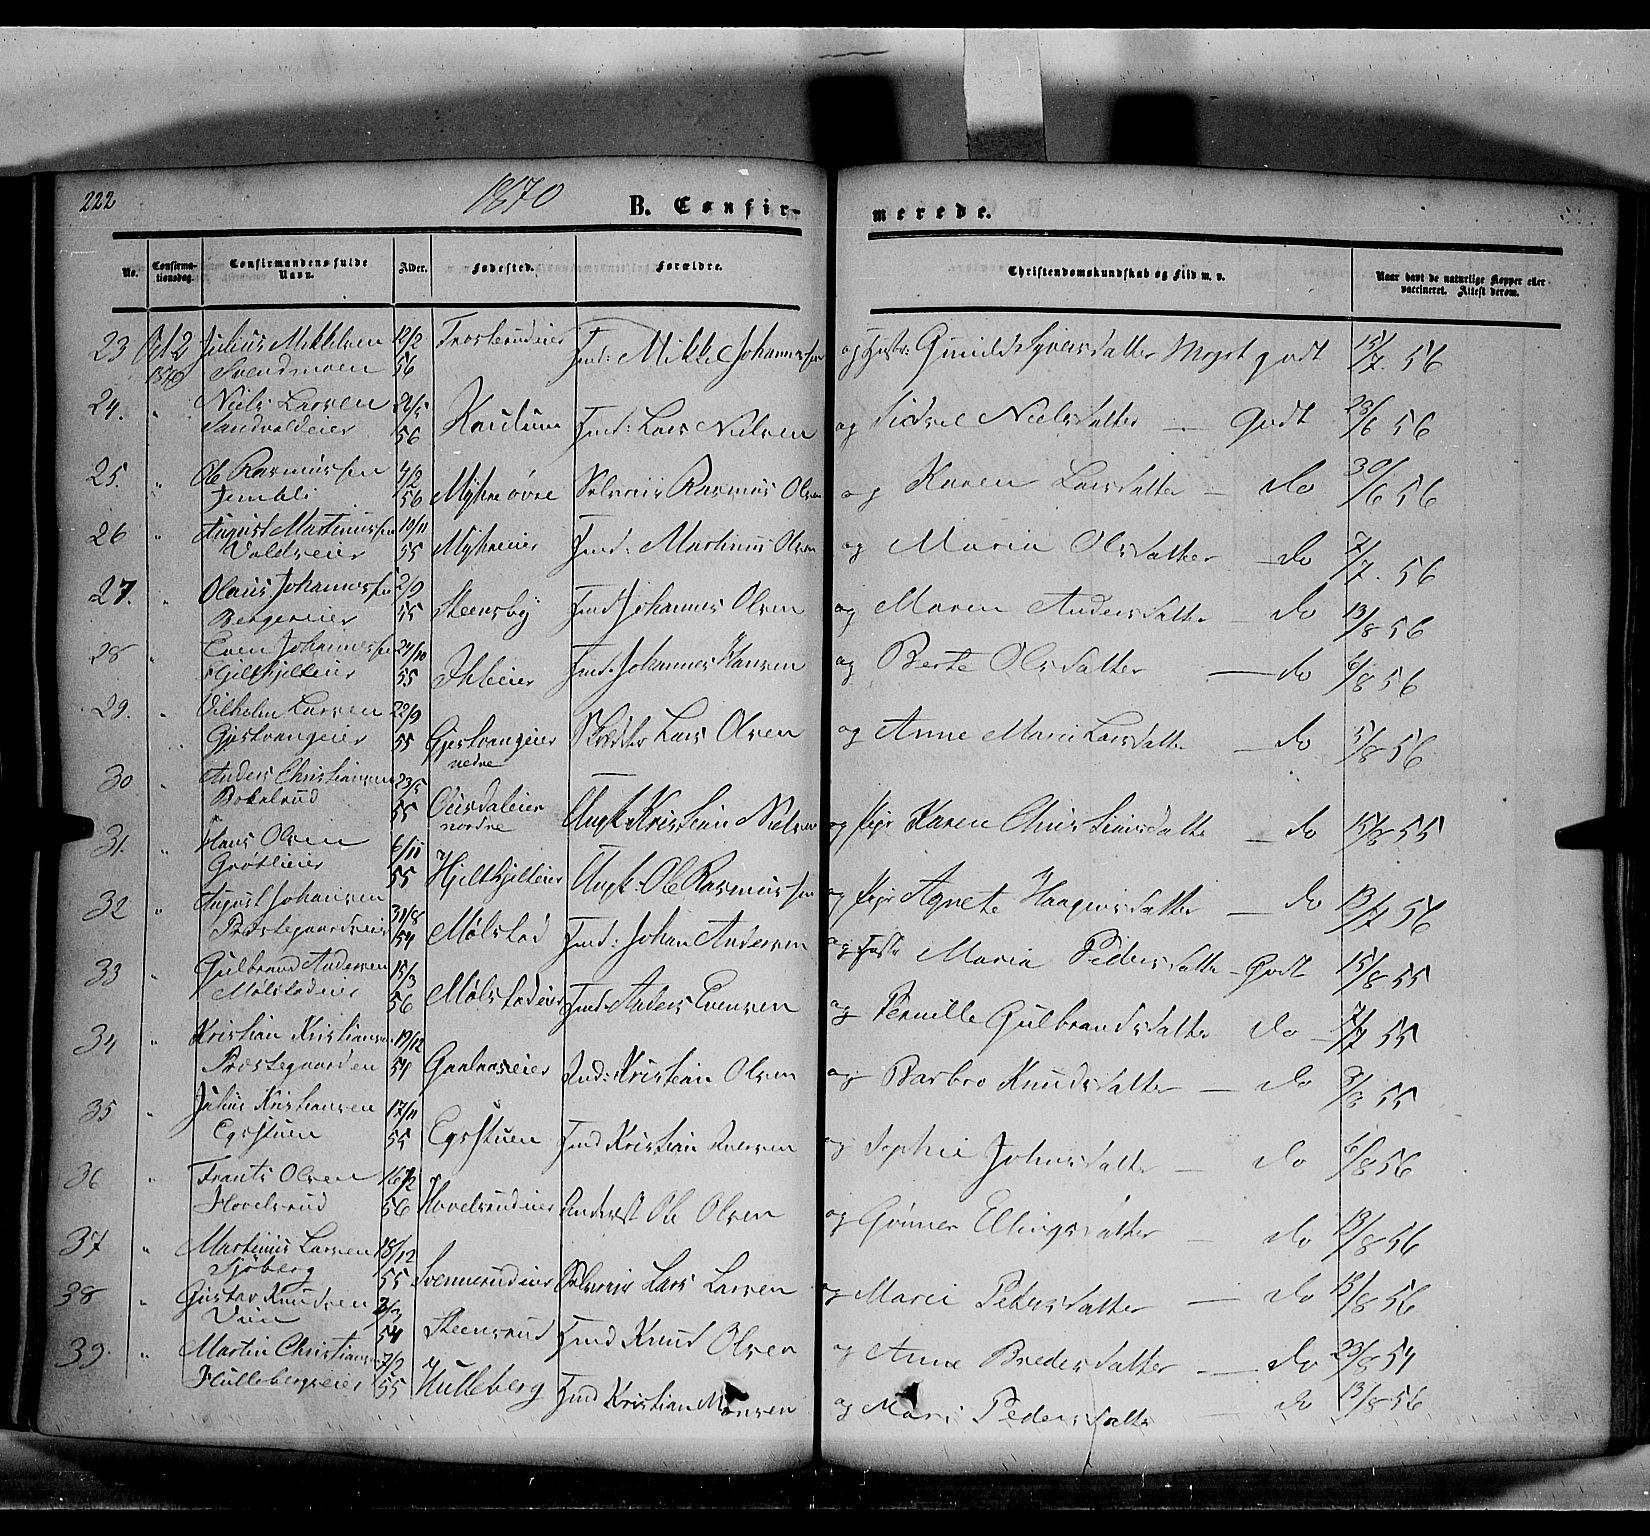 222
1870
B. Confir-
merede.
No.
Confirma-
tionsdag.
Confirmandens fulde
Navn.
Alder.
Fødested.
Forældre.
Christendomskundskab og Flid m. v.
Naar havt de naturlige Kopper eller
vaccineret. Attest derom.
23 Oct 2 Julius Mikkelsen 12/2 Inds: Mikkel Johannessen og Hustr: Gunild Syversdatter Meget godt 15/7. 56
1870 Svendmoen 56
24. " Niels Larsen 26/5 Kaulum Inds: Lars Nielsen og Sidsel Nielsdatter — Godt 23/6 56
Sandvoldeier 56
25. " Ole Rasmussen 4/2 Myhre øvre Selveier Rasmus Olsen og Karen Larsdatter — do 30/6 56
56
26 " August Martinussen 19/11 Myhreeier Inds: Martinus Olsen og Maria Olsdatter — do 7/7. 56
55
27. " Olaus Johannessen 2/9 Steensby Inds Johannes Olsen og Maren Andersdatter — do 13/8 56
Bergereier 55
28 " Even Johannessen 24/10 Ihleeier Inds. Johannes Hansen og Berte Olsdatter — do 6/8 56
Hjeltkjelteier 55
29. " Vilhelm Larsen 22/9 Gjestvangeier Skrædder Lars Olsen og Anne Marie Larsdatter — do 5/8 56
Gjestvangeier 55 nedre
30 " Anders Christiansen 23/5 Ungk. Kristian Nielsen og Pige Karen Christiansdatter — do 15/8 55
Bokelrud 55 nordre
31. " Hans Olsen 6/11 Hjeltkjelteier Ungk. Ole Rasmussen og Pige Agnete Haagensdatter — do 13/7 56
Grøtlieier 55
32 " August Johansen 31/8 Mølstad Inds: Johan Andersen og Hustr Maria Pedersdatter — Godt 15/8 55
Præstegaardseier 54
33 " Gulbrand Andersen 15/3 Mølstadeier Inds. Anders Evensen og Pernille Gulbrandsdatter do — 7/7 55
Mølstadeier 56
34 " Kristian Kristiansen 19/12 Gaalaaseier Inds: Kristian Olsen og Barbro Knudsdatter — do 3/8 55
Præstegaarden 54
35 " Julius Kristiansen 17/11 Egsstuen Inds Kristian Iversen og Sophie Johnsdatter — do 6/8 56
Egsstuen 55
36 " Frants Olsen 16/2 Hovelsrudeier Ole Olsen og Gunner Ellingsdatter — do 13/8 56
Hovelsrud 56
37 " Martinus Larsen 18/12 Svennerudeier Selveier Lars Larsen og Marie Petersdatter — do 13/8 56
Sjøberg 55
38 " Gustav Knudsen 2/3 Steensrud Inds Knud Olsen og Anne Bredesdatter — do 23/8 54
54
39. " Martin Christiansen 7/2 Hulleberg Inds Kristian Monsen og Mari Pedersdatter do 13/8 56
Hullebergseier 55